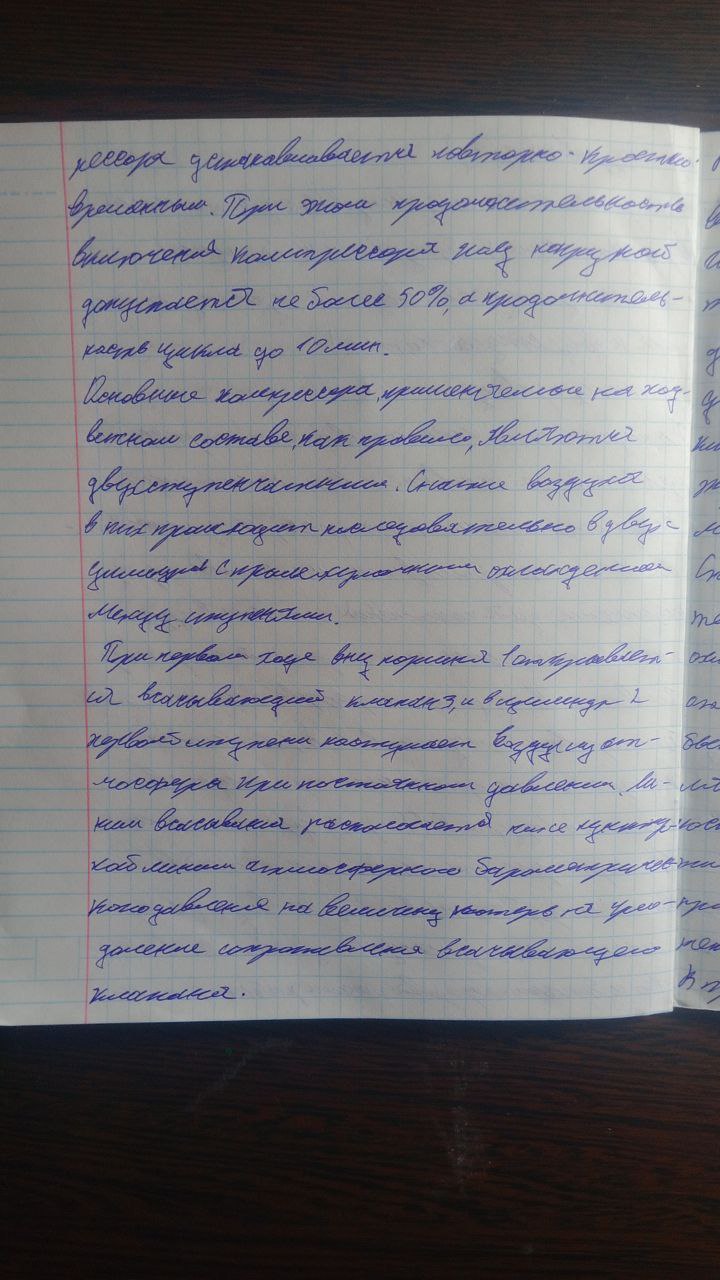 рессора устанавливается повторно-кратко-
временным. При этом продолжительность
включения компрессора под нагрузкой
допускается не более 50%, а продолжитель-
ность цикла до 10 мин.
Основные компрессора, применяемые на под-
вижном составе, как правило, являются
двухступенчатыми. Сжатие воздуха
в них происходит последовательно в двух
цилиндрах с промежуточным охлаждением
между ступенями.
При первом ходе вниз поршня 1 открывает-
ся всасывающий клапан 3, и в цилиндр 2
первой ступени поступает воздух из ат-
мосферы при постоянном давлении. Ли-
ния всасывания располагается ниже пунктир-
ной линии атмосферного барометричес-
кого давления на величину потерь на прео-
доление сопротивления всасывающего
клапана.